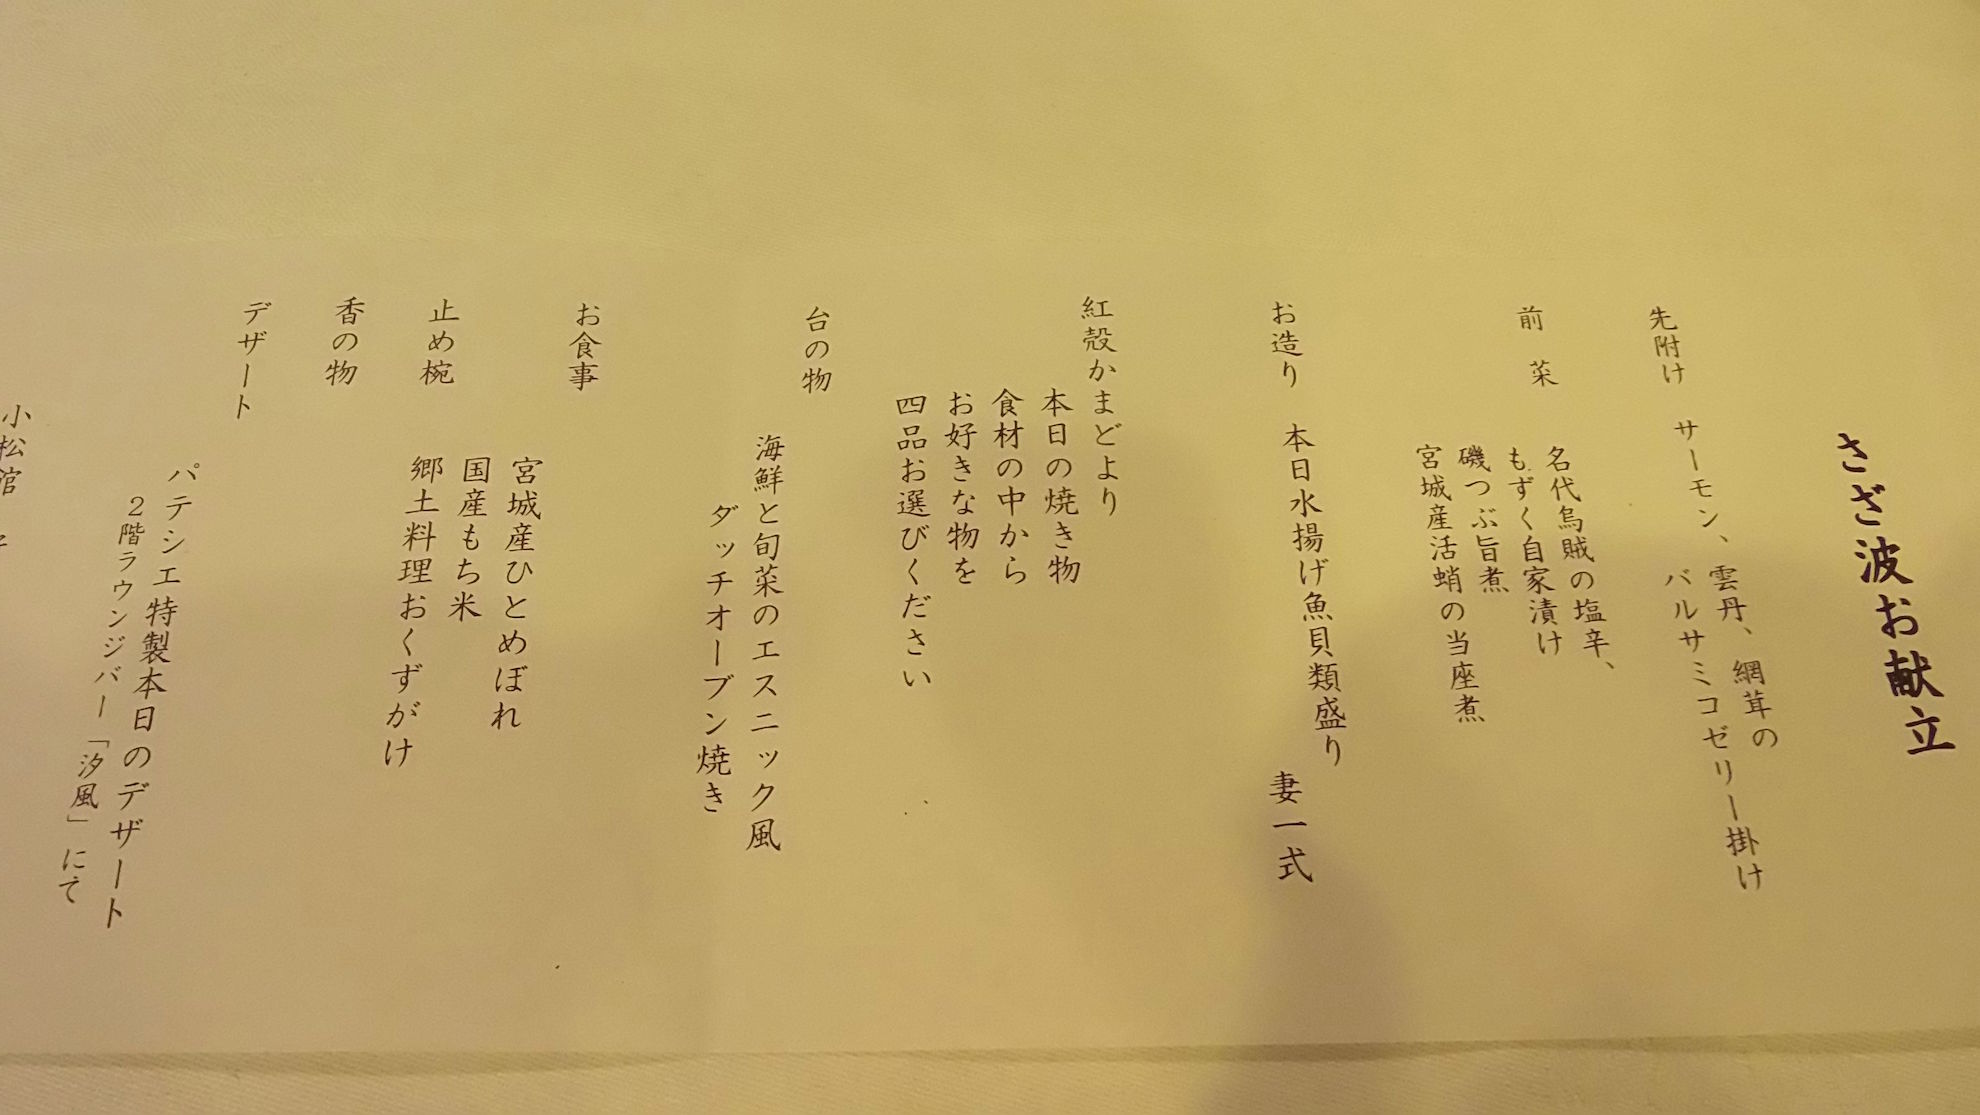 さざ波お献立
先附け
サーモン、雲丹、網茸の
バルサミコゼリー掛け
前 菜
名代烏賊の塩辛、
もずく自家漬け
磯つぶ旨煮
宮城産活蛸の当座煮
お造り 本日水揚げ魚貝類盛り
妻一式
紅殻かまどより
本日の焼き物
食材の中から
お好きな物を
四品お選びください
台の物
海鮮と旬菜のエスニック風
ダッチオーブン焼き
お食事
宮城産ひとめぼれ
国産もち米
止め椀
郷土料理おくずがけ
香の物
デザート
パテシエ特製本日のデザート
２階ラウンジバー「汐風」にて
小松館